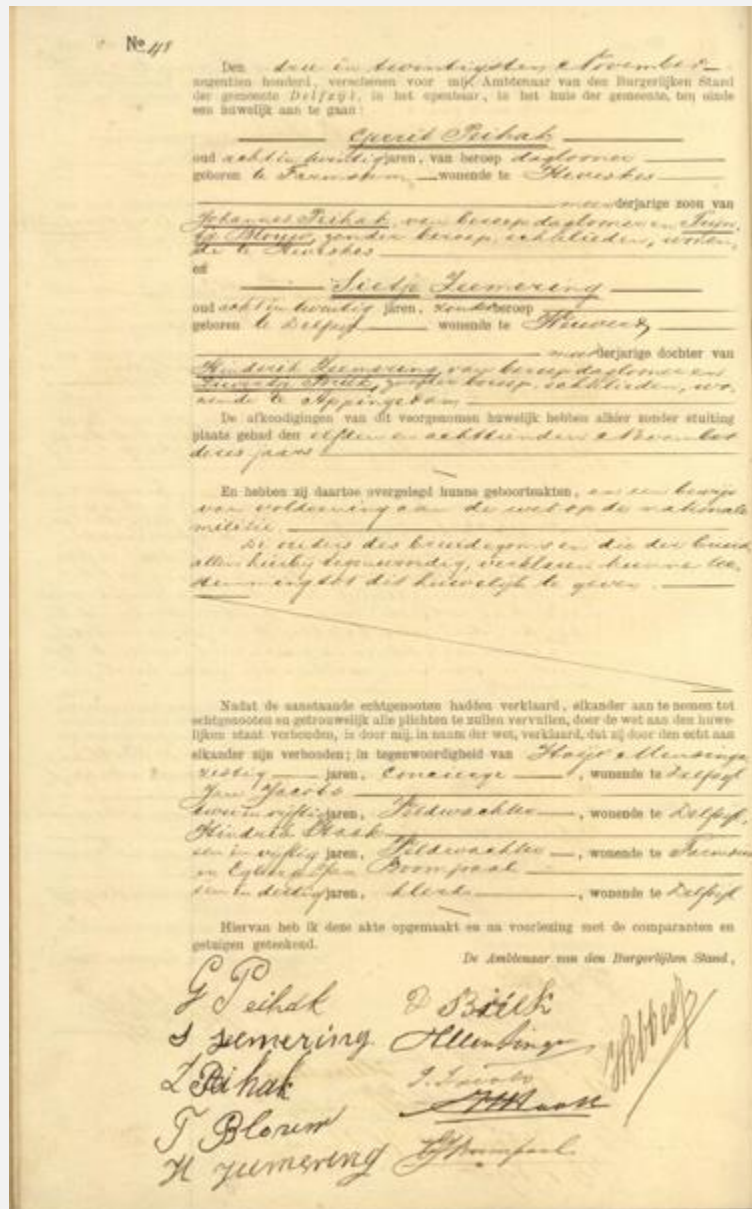 No 48
Den drie en twintigsten November
negentien honderd, verschenen voor mij Ambtenaar van den Burgerlijken Stand
der gemeente Delfzijl, in het openbaar, in het huis der gemeente, ten einde
een huwelijk aan te gaan:
Gerrit Peihak
oud acht en twintig jaren, van beroep dagloner
geboren te Farmsum wonende te Heveskes
meerderjarige zoon van
Johannes Peihak, van beroep dagloner en
Blouw, zonder beroep, echtelieden, wonen,
de te Heveskes
en
Sietje Zuemering
oud acht en twintig jaren, zonder beroep
geboren te Delfzijl wonende te
meerderjarige dochter van
Hinderit Zuemering, van beroep dagloner en
zonder beroep, echtelieden, wo-
nende te Appingedam
De afkondigingen van dit voorgenomen huwelijk hebben alhier zonder stuiting
plaats gehad den elfden en achttienden November
dezes jaars
En hebben zij daartoe overgelegd hunne geboorteakten, en een bewijs
van voldoening aan de wet op de nationale
militie
De ouders des bruidegoms en die der bruid
allen hierbij tegenwoordig, verklaren hunne toe-
stemming tot dit huwelijk te geven
Nadat de aanstaande echtgenooten hadden verklaard, elkander aan te nemen tot
echtgenooten en getrouwelijk alle plichten te zullen vervullen, door de wet aan den huwe-
lijken staat verbonden, is door mij, in naam der wet, verklaard, dat zij door den echt aan
elkander zijn verbonden; in tegenwoordigheid van Mensinga
zestig jaren, Concierge, wonende te Delfzijl
Jan Jacobs
twee en vijftig jaren, Veldwachter, wonende te Delfzijl,
Hindrik
een en vijftig jaren, Veldwachter, wonende te Farmsum
en Egbert Jan Boompaal
een en dertig jaren, klerk, wonende te Delfzijl
Hiervan heb ik deze akte opgemaakt en na voorlezing met de comparanten en
getuigen geteekend.
De Ambtenaar van den Burgerlijken Stand,
G Peihak
S zuemering
Z Peihak
T Blouw
H zuemering
HMensinga
J. Jacobs
EJBoompaal